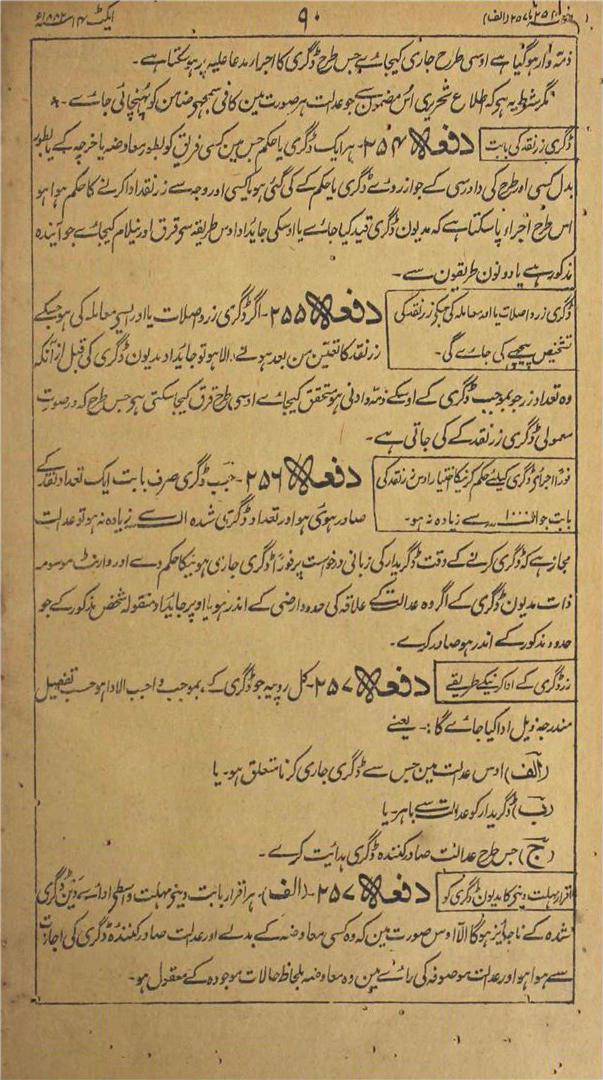 ایکٹ ۱۴ سنہ ۱۸۸۲ء ۹۰ دفعہ ۲۵۴ تا ۲۵۷ (الف)
ذمہ وار ہوگیا ہے اوسی طرح جاری کیجاے جس طرح ڈگری کا اجرا مدعا علیہ پر ہوسکتا ہے۔
مگر شرط یہ ہے کہ اطلاع تحریری اس مضمون سے جو عدالت ہر صورت مین کافی سمجھے ضامن کو پہنچائی جاے۔
ڈگری زر نقد کی بابت دفعہ ۲۵۴۔ ہر ایک ڈگری یا حکم جس مین کسی فریق کو بطور معاوضہ یا خرچہ کے یا بطور
بدل کسی اور طرح کی دادرسی کے جو از روے ڈگری یا حکم کے کی گئی ہو یا کسی اور وجہ سے زر نقد ادا کرنے کا حکم ہوا ہو
اس طرح اجراء پاسکتا ہے کہ مدیون ڈگری قید کیا جاے یا اوسکی جایداد اوس طریقہ سے قرق اور نیلام کیجاے جو آیندہ
مذکور ہے یا دونون طریقون سے۔
ڈگری زر واصلات یا اور معاملہ کی جسکے زر نقد کی دفعہ ۲۵۵۔ اگر ڈگری زر واصلات یا اور ایسے معاملہ کی ہو جسکے
تشخیص پیچھے کی جاے گی۔ زر نقد کا تعین من بعد ہونے والا ہو تو جایداد مدیون ڈگری کی قبل از آنکہ
وہ تعداد زر جو بموجب ڈگری کے اوسکے ذمہ وادنی ہو متحقق کیجاے اوسی طرح قرق کیجاسکتی ہو جس طرح کہ درصورت
معمولی ڈگری زر نقد کے کی جاتی ہے۔
فوراً اجراے ڈگری کیلئے حکم کرنیکا اختیار اوس زر نقد کی دفعہ ۲۵۶۔ جب ڈگری صرف بابت ایک تعداد نقد کے
بابت جو ۱۰۰۰ سے زیادہ نہ ہو۔ صادر ہوئی ہو اور تعداد ڈگری شدہ سے زیادہ نہ ہو تو عدالت
مجاز ہے کہ ڈگری کرنے کے وقت ڈگریدار کی زبانی درخواست پر فوراً ڈگری جاری ہونیکا حکم دے اور وارنٹ موسومہ
ذات مدیون ڈگری کے اگر وہ عدالت کے علاقہ کی حدود ارضی کے اندر ہو یا اوپر جایداد منقولہ شخص مذکور کے جو
حدود مذکور کے اندر ہو صادر کرے۔
زر ڈگری کے ادا کرنیکے طریقے دفعہ ۲۵۷۔ کل روپیہ جو ڈگری کے بموجب واجب الادا ہو حسب تفصیل
مندرجہ ذیل ادا کیا جاے گا :۔ یعنے
(الف) اوس عدالت مین جس سے ڈگری جاری کرنا متعلق ہو۔ یا
(ب) ڈگریدار کو عدالت سے باہر۔ یا
(ج) جس طرح عدالت صادر کنندہ ڈگری ہدایت کرے۔
اقرار مہلت دینے کا مدیون ڈگری کو دفعہ ۲۵۷۔ (الف)۔ ہر اقرار بابت دینے مہلت واسطے اداے دین ڈگری
شدہ کے ناجائز ہوگا الا اوس صورت مین کہ وہ کسی معاوضہ کے بدلے اور عدالت صادر کنندہ ڈگری کی اجازت
سے ہوا ہو اور عدالت موصوفہ کی راے مین وہ معاوضہ بلحاظ حالات موجودہ کے معقول ہو۔